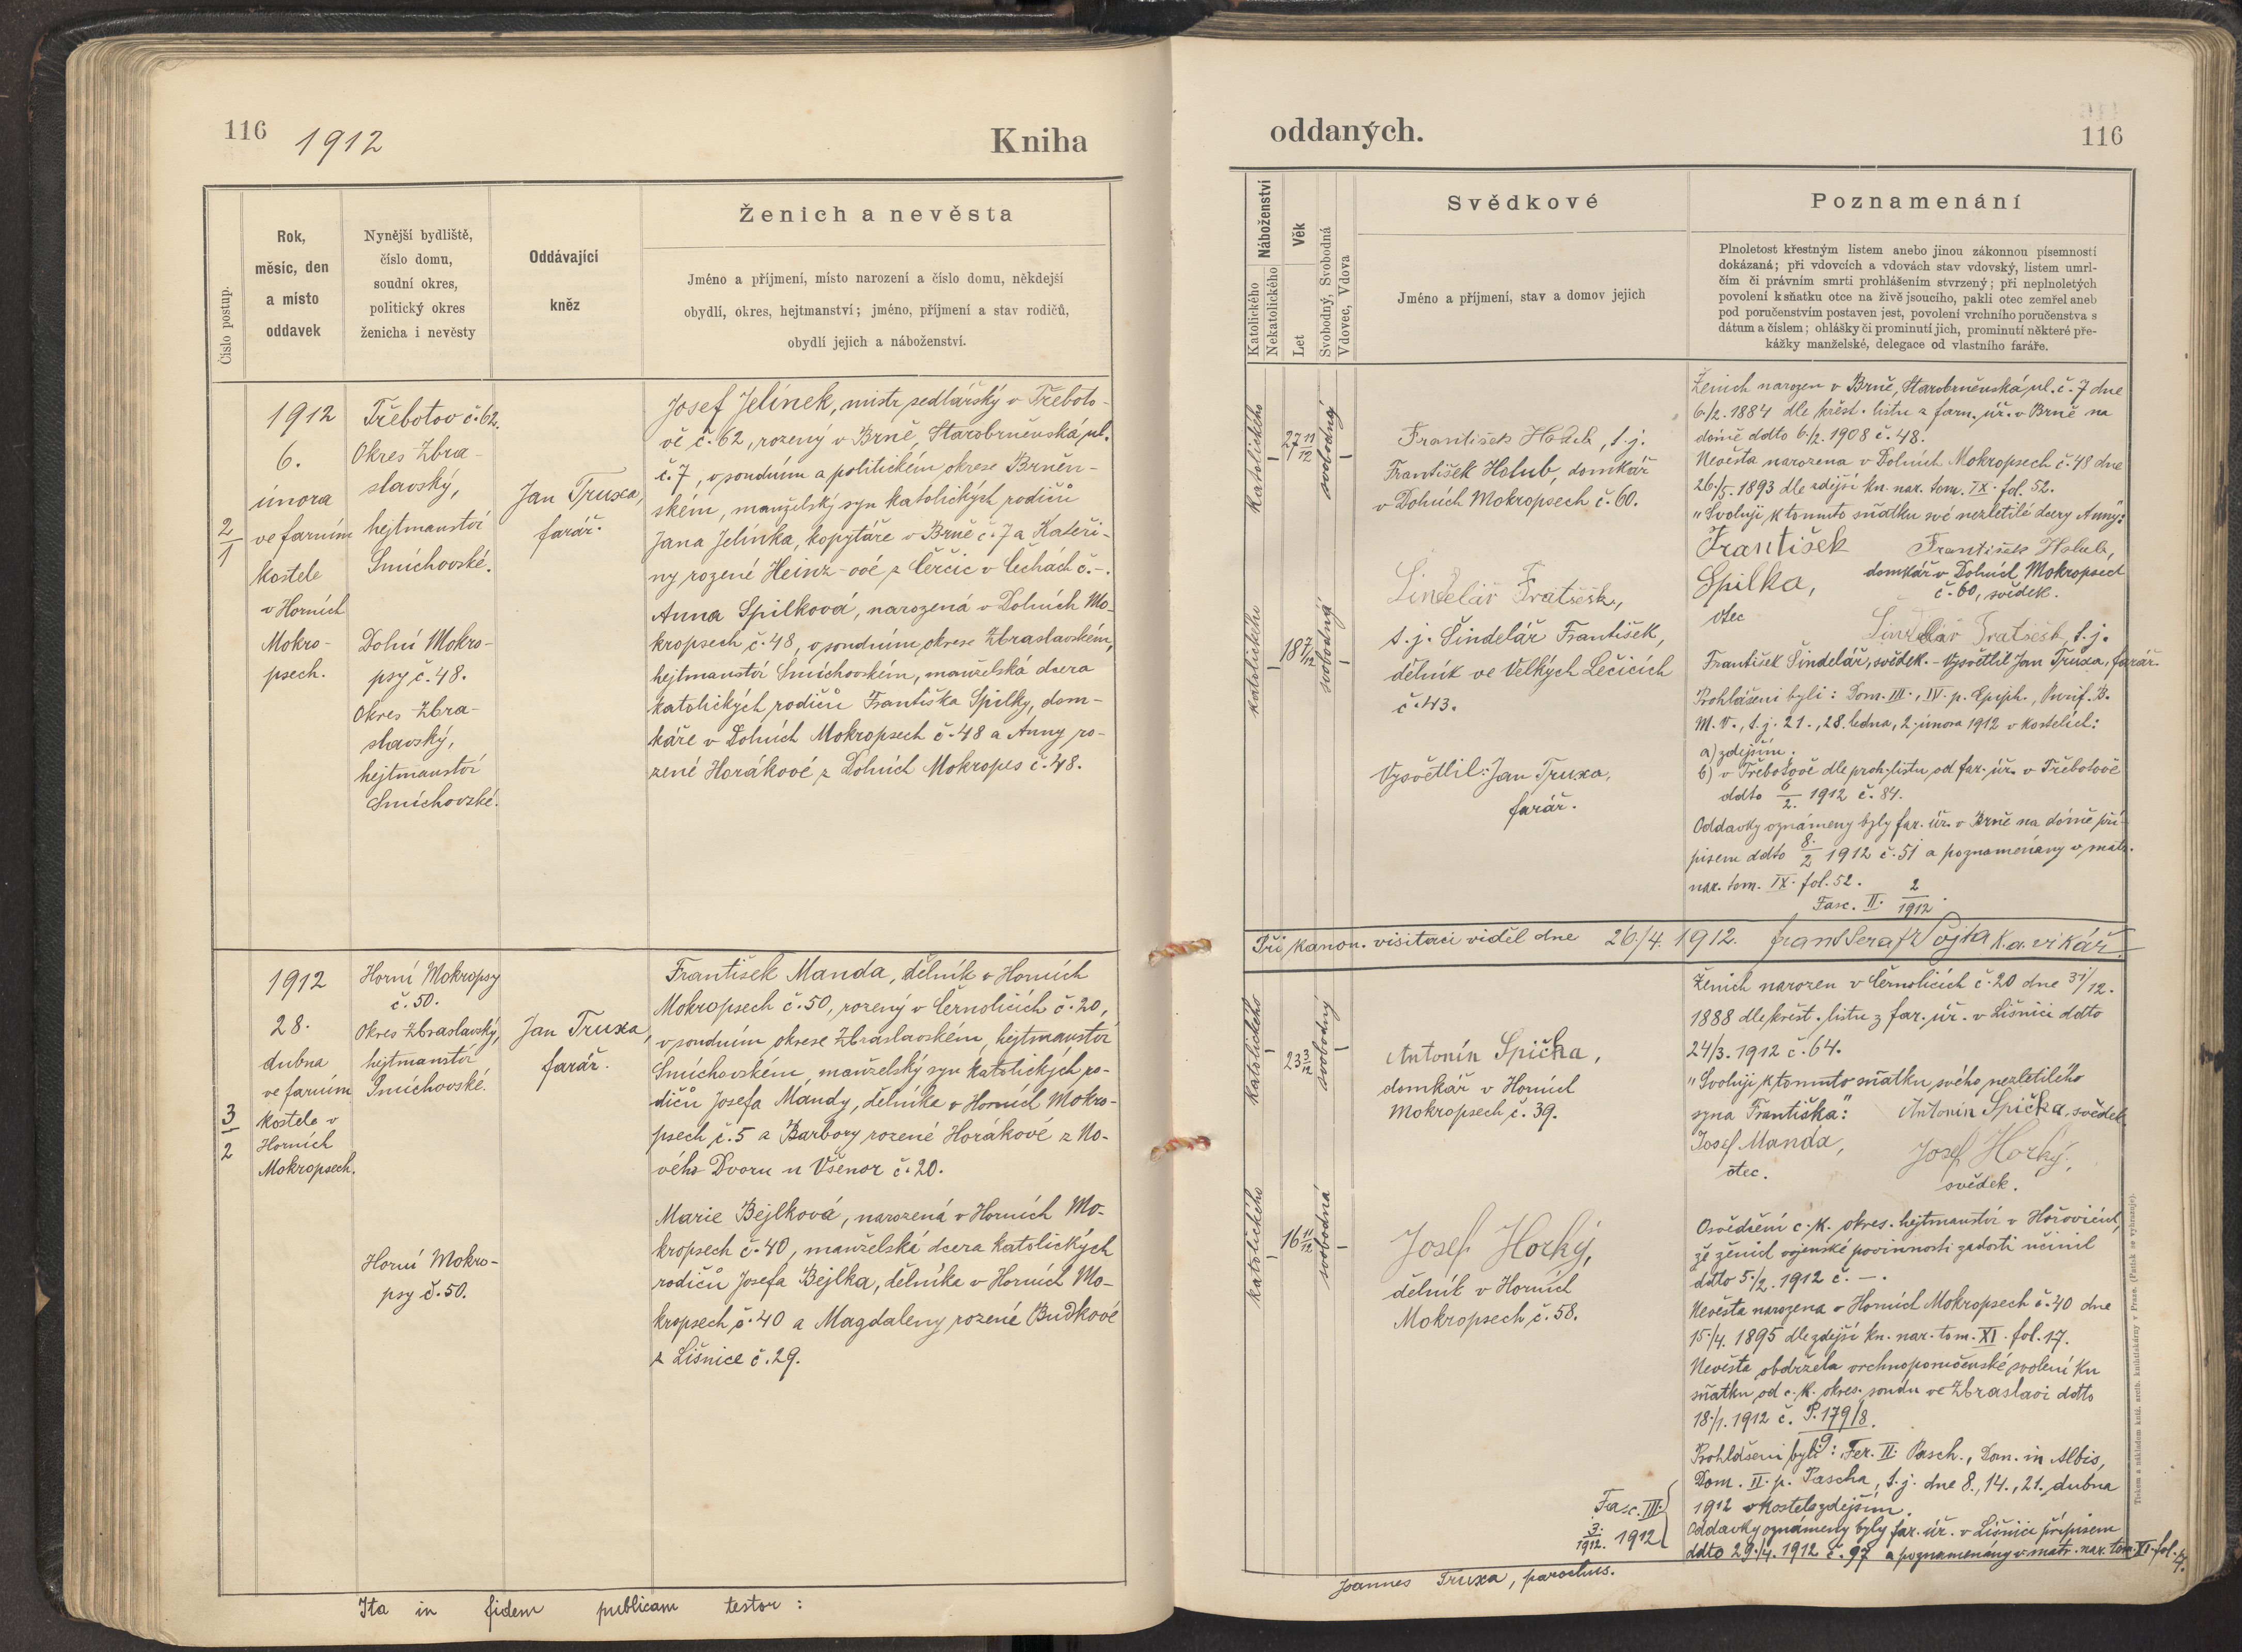 116
1912
Kniha
Číslo postup.
Rok,
měsíc, den
a místo
oddavek
Nynější bydliště,
číslo domu,
soudní okres,
politický okres
ženicha i nevěsty
Oddávající
kněz
Ženich a nevěsta
Jméno a příjmení, místo narození a číslo domu, někdejší
obydlí, okres, hejtmanství; jméno, příjmení a stav rodičů,
obydlí jejich a náboženství.
2
1
1912
6.
února
ve farním
kostele
v Horních
Mokro-
psech.
Třebotov č. 62.
Okres Zbra-
slavský,
hejtmanství
Smíchovské.
Dolní Mokro-
psy č. 48.
Okres Zbra-
slavský,
hejtmanství
Smíchovské.
Jan Truxa,
farář.
Josef Jelínek, mistr sedlářský v Třeboto-
vě č. 62, rozený v Brně, Starobrněnská ul.
č. 7, v soudním a politickém okrese Brněn-
ském, manželský syn katolických rodičů
Jana Jelínka, kopytáře v Brně č. 7 a Kateři-
ny rozené Heinz-ové z Čerčic v Čechách č. -.
Anna Špilková, narozená v Dolních Mo-
kropsech č. 48, v soudním okrese Zbraslavském,
hejtmanství Smíchovském, manželská dcera
katolických rodičů Františka Špilky, dom-
káře v Dolních Mokropsech č. 48 a Anny ro-
zené Horákové z Dolních Mokropes č. 48.
3
2
1912
28.
dubna
ve farním
kostele v
Horních
Mokropsech.
Horní Mokropsy
č. 50.
Okres Zbraslavský,
hejtmanství
Smíchovské.
Horní Mokro-
psy č. 50.
Jan Truxa,
farář.
František Manda, dělník v Horních
Mokropsech č. 50, rozený v Černolicích č. 20,
v soudním okrese Zbraslavském, hejtmanství
Smíchovském, manželský syn katolických ro-
dičů Josefa Mandy, dělníka v Horních Mokro-
psech č. 5 a Barbory rozené Horákové z No-
vého Dvoru u Všenor č. 20.
Marie Bejlková, narozená v Horních Mo-
kropsech č. 40, manželská dcera katolických
rodičů Josefa Bejlka, dělníka v Horních Mo-
kropsech č. 40 a Magdaleny rozené Budkové
z Líšnice č. 29.
Ita in fidem publicam testor:
oddaných.
116
Náboženství
Katolického
Nekatolického
Věk
Let
Svobodný, Svobodná
Vdovec, Vdova
Svědkové
Jméno a příjmení, stav a domov jejich
Poznamenání
Plnoletost křestným listem anebo jinou zákonnou písemností
dokázaná; při vdovcích a vdovách stav vdovský, listem umrl-
čím či právním smrti prohlášením stvrzený; při neplnoletých
povolení k sňatku otce na živě jsoucího, pakli otec zemřel aneb
pod poručenstvím postaven jest, povolení vrchního poručenstva s
dátum a číslem; ohlášky či prominutí jich, prominutí některé pře-
kážky manželské, delegace od vlastního faráře.
katolického
27 11/12
svobodný
František Holub, t. j.
František Holub, domkář
v Dolních Mokropsech č. 60.
katolického
18 7/12
svobodná
Šindelář Fratišek,
t. j. Šindelář František,
dělník ve Velkých Lečicích
č. 43.
Vysvětlil: Jan Truxa,
farář.
Ženich narozen v Brně, Starobrněnská ul. č. 7 dne
6/2. 1884 dle křest. listu z farn. úř. v Brně na
dómě ddto 6/2. 1908 č. 48.
Nevěsta narozena v Dolních Mokropsech č. 48 dne
26/5. 1893 dle zdejší kn. nar. tom. IX. fol. 52.
"Svoluji k tomuto sňatku své nezletilé dcery Anny":
František Špilka, otec
František Holub,
domkář v Dolních Mokropsech
č. 60, svědek.
Šindelář Fratišek, t. j.
František Šindelář, svědek. - Vysvětlil Jan Truxa, farář.
Prohlášeni byli: Dom. III., IV. p. Epiph., Purif. B.
M. V., t. j. 21., 28. ledna, 2. února 1912 v kostelích:
a) zdejším.
b) v Třebotově dle proh. listu od far. úř. v Třebotově
ddto 6/2. 1912 č. 84.
Oddavky oznámeny byly far. úř. v Brně na dómě pří-
pisem ddto 8./2 1912 č. 51 a poznamenány v matr.
nar. tom. IX. fol. 52.
Fasc. II. 2/1912.
Při kanon. visitaci viděl dne 26./4. 1912. Frant Seraf Vojta k.a. vikář.
katolického
23 3/12
svobodný
Antonín Špička,
domkář v Horních
Mokropsech č. 39.
katolického
16 11/12
svobodná
Josef Horký,
dělník v Horních
Mokropsech č. 58.
Ženich narozen v Černolicích č. 20 dne 31/12.
1888 dle křest. listu z far. úř. v Líšnici ddto
24/3. 1912 č. 64.
"Svoluji k tomuto sňatku svého nezletilého
syna Františka": Antonín Špička, svědek.
Josef Manda,
otec.
Josef Horký,
svědek.
Osvědčení c. k. okres. hejtmanství v Hořovicích,
že ženich vojenské povinnosti zadosti učinil
ddto 5./2. 1912 č. -.
Nevěsta narozena v Horních Mokropsech č. 40 dne
15./4. 1895 dle zdejší kn. nar. tom. XI. fol. 17.
Nevěsta obdržela vrchnoporučenské svolení ku
sňatku od c. k. okres. soudu ve Zbraslavi ddto
18./1. 1912 č. P. 179/8
9
Prohlášeni byli: Fer. II. Pasch., Dom. in Albis,
Dom. II. p. Pascha, t. j. dne 8., 14., 21. dubna
1912 v kostele zdejším.
Oddavky oznámeny byly far. úř. v Líšnici přípisem
ddto 29./4. 1912 č. 97 a poznamenány v matr. nar. tom. XI. fol. 17.
Fasc. III.
3./1912. 1912
Joannes Truxa, parochus.